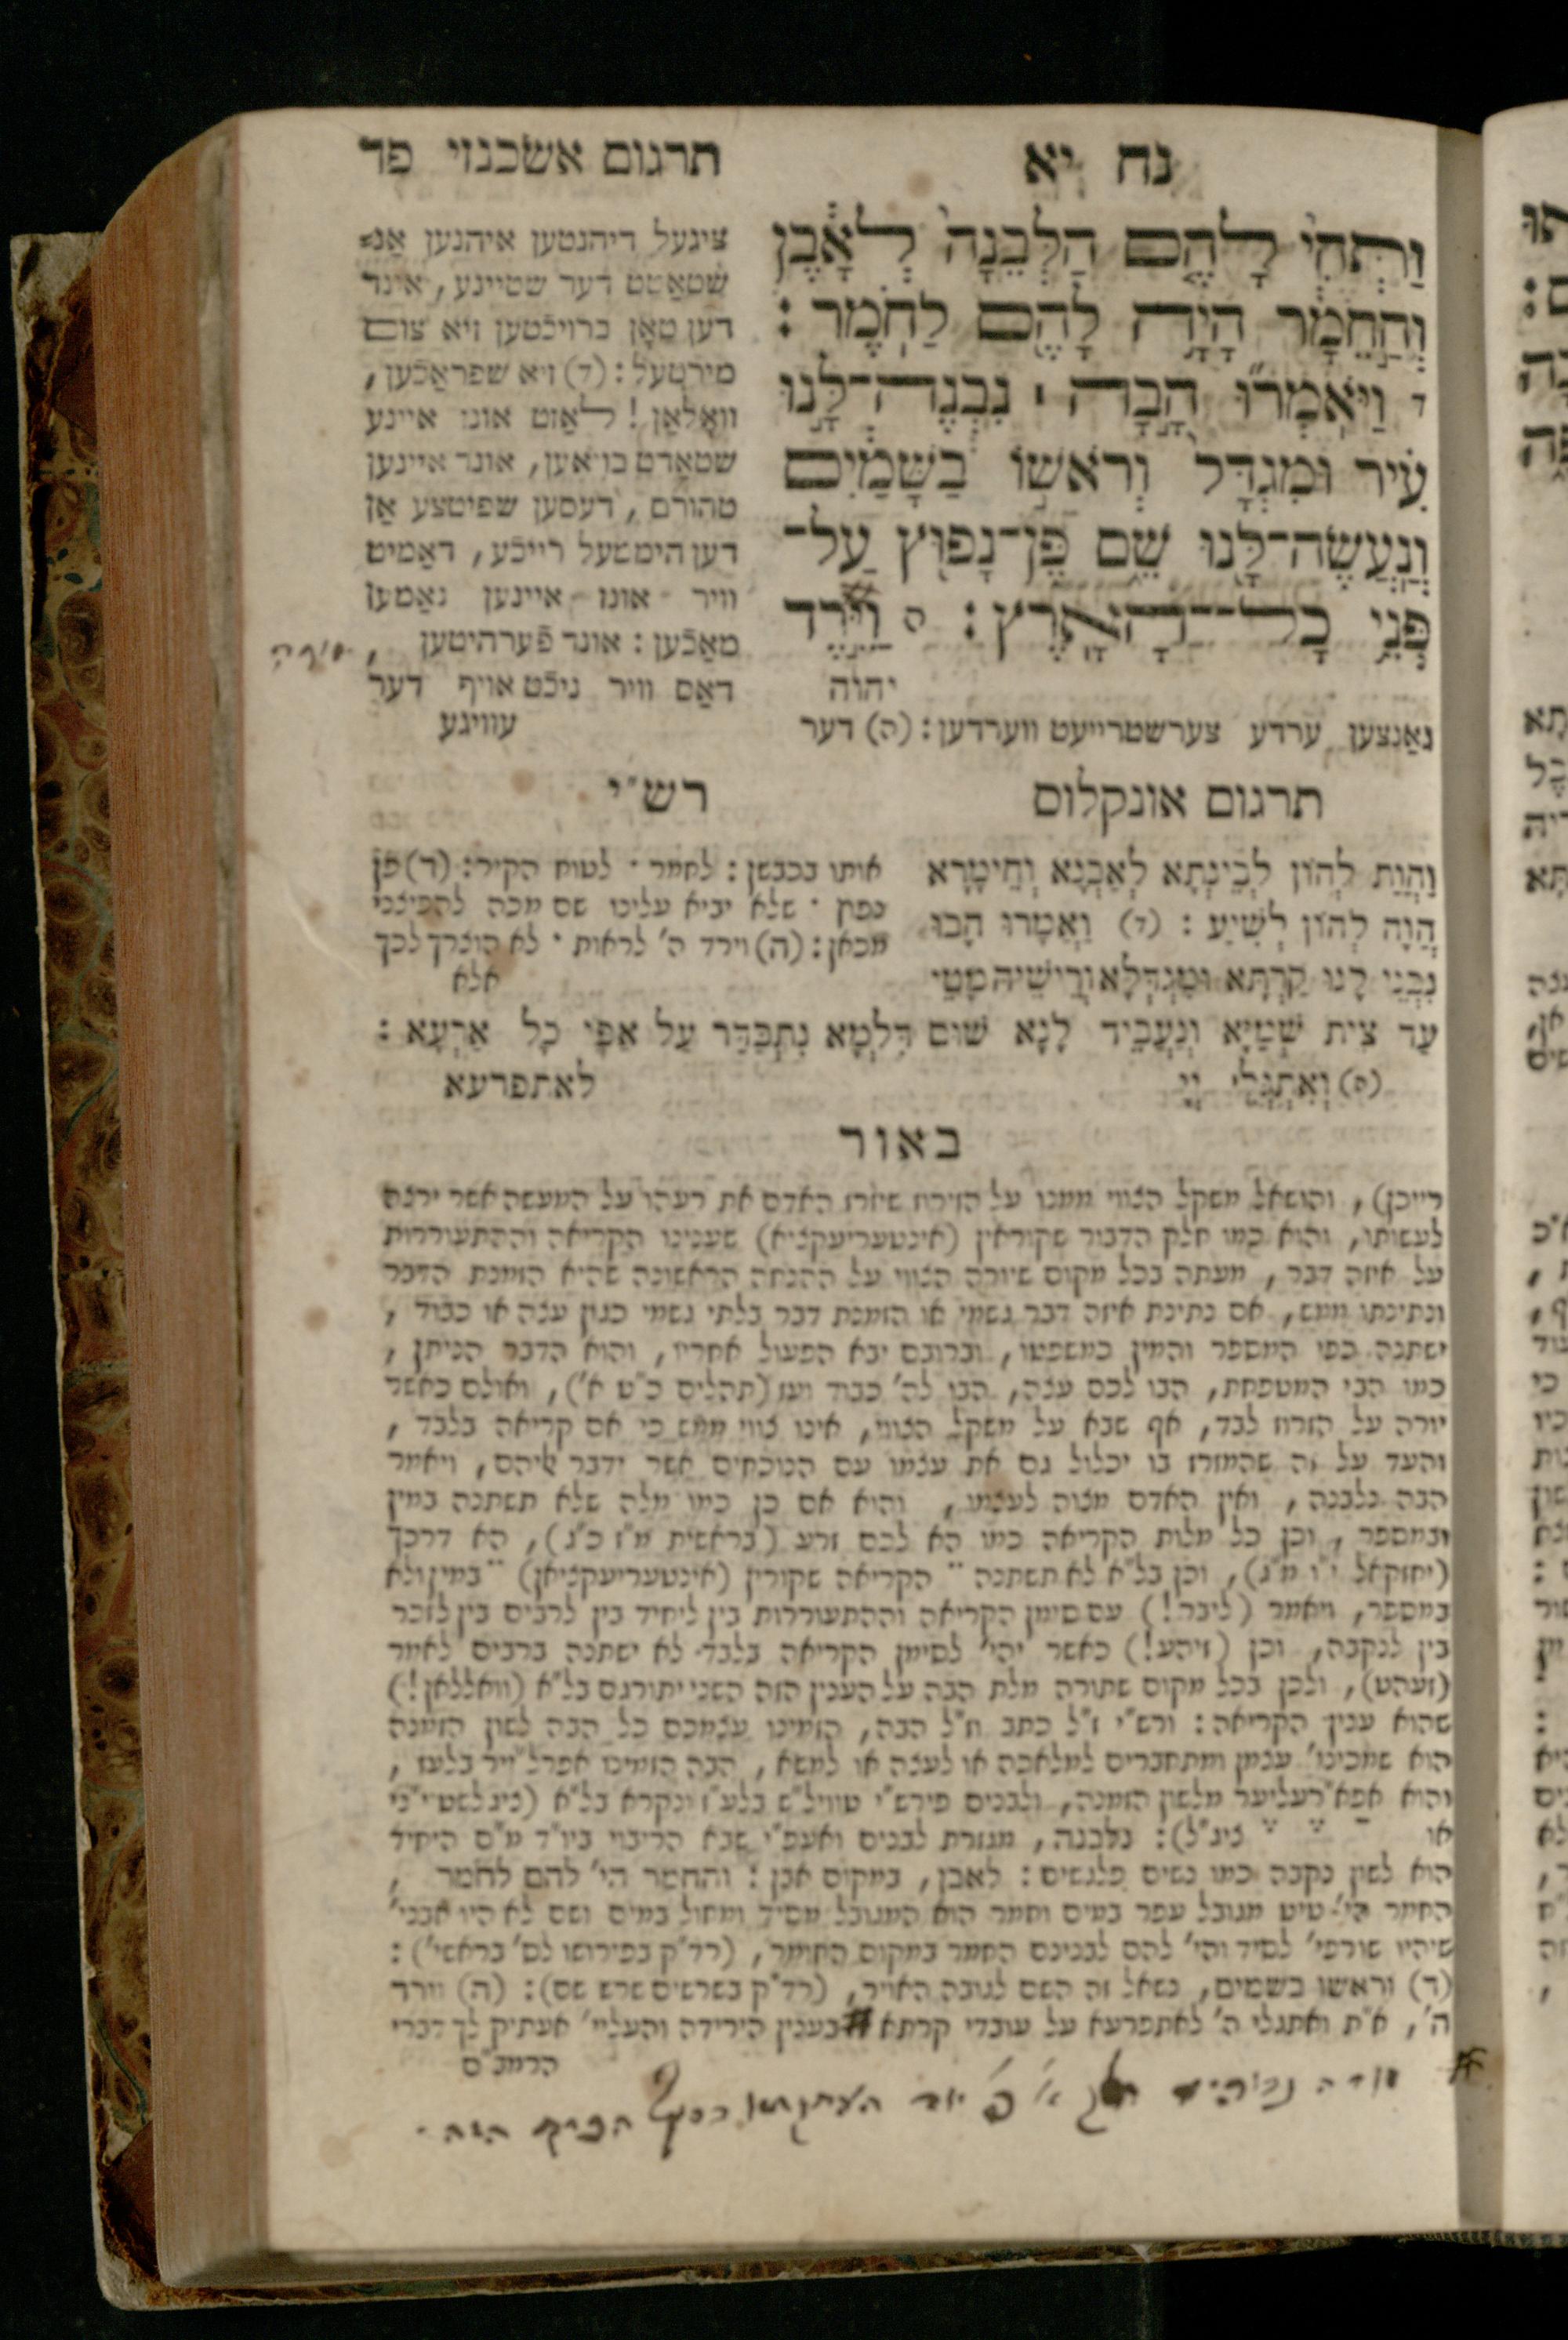 נח יא
תרגום אשכנזי פד
וַתְּהִ֨י לָהֶ֤ם הַלְּבֵנָה֙ לְאָ֔בֶן
וְהַ֣חֵמָ֔ר הָיָ֥ה לָהֶ֖ם לַחֹֽמֶר:
ד וַיֹּאמְר֞וּ הָ֣בָה ׀ נִבְנֶה־לָּ֣נוּ
עִ֗יר וּמִגְדָּל֙ וְרֹאשׁ֣וֹ בַשָּׁמַ֔יִם
וְנַֽעֲשֶׂה־לָּ֖נוּ שֵׁ֑ם פֶּן־נָפ֖וּץ עַל־
פְּנֵ֥י כָל־הָאָֽרֶץ: ה וַיֵּ֣רֶד
יהוה
ציגעל דיהנטען איהנען אַנ=
שטאַטט דער שטיינע, אונד
דען טאָן ברויכטען זיא צום
מירטעל: (ד) זיא שפראַכען,
וואָלאַן! לאַזט אונז איינע
שטאַדט בויאען, אונד איינען
טהורם, דעסען שפיטצע אַן
דען הימטעל רייכע, דאַמיט
וויר אונז איינען נאַמען
מאַכען: אונד פערהיטען,
דאַס וויר ניכט אויף דער
גאַנצען ערדע צערשטרייעט ווערדען: (ה) דער
עוויגע
תרגום אונקלוס
וַהֲוַת לְהוֹן לְבֵינְתָא לְאַבְנָא וְחֵימָרָא
הֲוָה לְהוֹן לְשִׁיעַ: (ד) וַאֲמָרוּ הָבוּ
נִבְנֵי לָנוּ קַרְתָּא וּמִגְדְּלָא וְרֵישֵׁיהּ מָטֵי
עַד צֵית שְׁמַיָּא וְנַעֲבֵיד לָנָא שׁוּם דִּלְמָא נִתְבַּדַּר עַל אַפֵּי כָל אַרְעָא:
(ה) וְאִתְגְּלִי יְיָ
לאתפרעא
רש"י
אותו בכבשן: לחמר · לטוח הקיר: (ד) פן
נפוץ · שלא יביא עלינו שם מכה להפיצנו
מכאן: (ה) וירד ה' לראות · לא הוצרך לכך
אלא
באור
רייכן), והושאל משקל הצווי ממנו על הזירוז שיזרז האדם את רעהו על המעשה אשר ירצה
לעשותו, והוא כמו חלק הדבור שקוראין (אינטעריעקציא) שענינו הקריאה וההתעוררות
על איזה דבר, מעתה בכל מקום שיורה הצווי על ההנחה הראשונה שהיא הזמנת הדבר
ונתינתו ממש, אם נתינת איזה דבר גשמי או הזמנת דבר בלתי גשמי כגון עצה או כבוד,
ישתנה כפי המספר והמין כמשפטו, וברובם יבא הפעול אחריו, והוא הדבר הניתן,
כמו הבי המטפחת, הבו לכם עצה, הבו לה' כבוד ועז (תהלים כ"ט א'), ואולם כאשר
יורה על הזרוז לבד, אף שבא על משקל הצווי, אינו צווי ממש כי אם קריאה בלבד,
והעד על זה שהמזרז בו יכלול גם את עצמו עם הנוכחים אשר ידבר אליהם, ויאמר
הבה נלבנה, ואין האדם מצוה לעצמו, והוא אם כן כמו מלה שלא תשתנה במין
ובמספר, וכן כל מלות הקריאה כמו הא לכם זרע (בראשית מ"ז כ"ג), הא דרכך
(יחזקאל י"ו מ"ג), וכן בל"א לא תשתנה הקריאה שקורין (אינטעריעקציאן) במין ולא
במספר, ויאמר (ליבר!) עם סימן הקריאה וההתעוררות בין ליחיד בין לרבים בין לזכר
בין לנקבה, וכן (זיהע!) כאשר יהי' לסימן הקריאה בלבד לא ישתנה ברבים לאמר
(זעהט), ולכן בכל מקום שתורה מלת הבה על הענין הזה השני יתורגם בל"א (וואללאן!)
שהוא ענין הקריאה: ורש"י ז"ל כתב וז"ל הבה, הזמינו עצמכם כל הבה לשון הזמנה
הוא שמכינו' עצמן ומתחברים למלאכה או לעצה או למשא, הבה הזמינו אפרל"ייר בלעז,
הוא לשון נקבה כמו נשים פלגשים: לאבן, במקום אבן: והחמר הי' להם לחמר,
החמר הי' טיט מגובל עפר במים וחמר הוא המגובל מסיד ומחול במים ושם לא היו אבני'
שיהיו שורפי' לסיד והי' להם לבנינם החמר במקום החומר, (רד"ק בפירושו לס' בראשי'):
(ד) וראשו בשמים, נשאל זה השם לגובה האויר, (רד"ק בשרשים שרש שם): (ה) וירד
ה', א"ת ואתגלי ה' לאתפרעא על עובדי קרתא בענין הירידה והעליי' אעתיק לך דברי
הרמב"ם